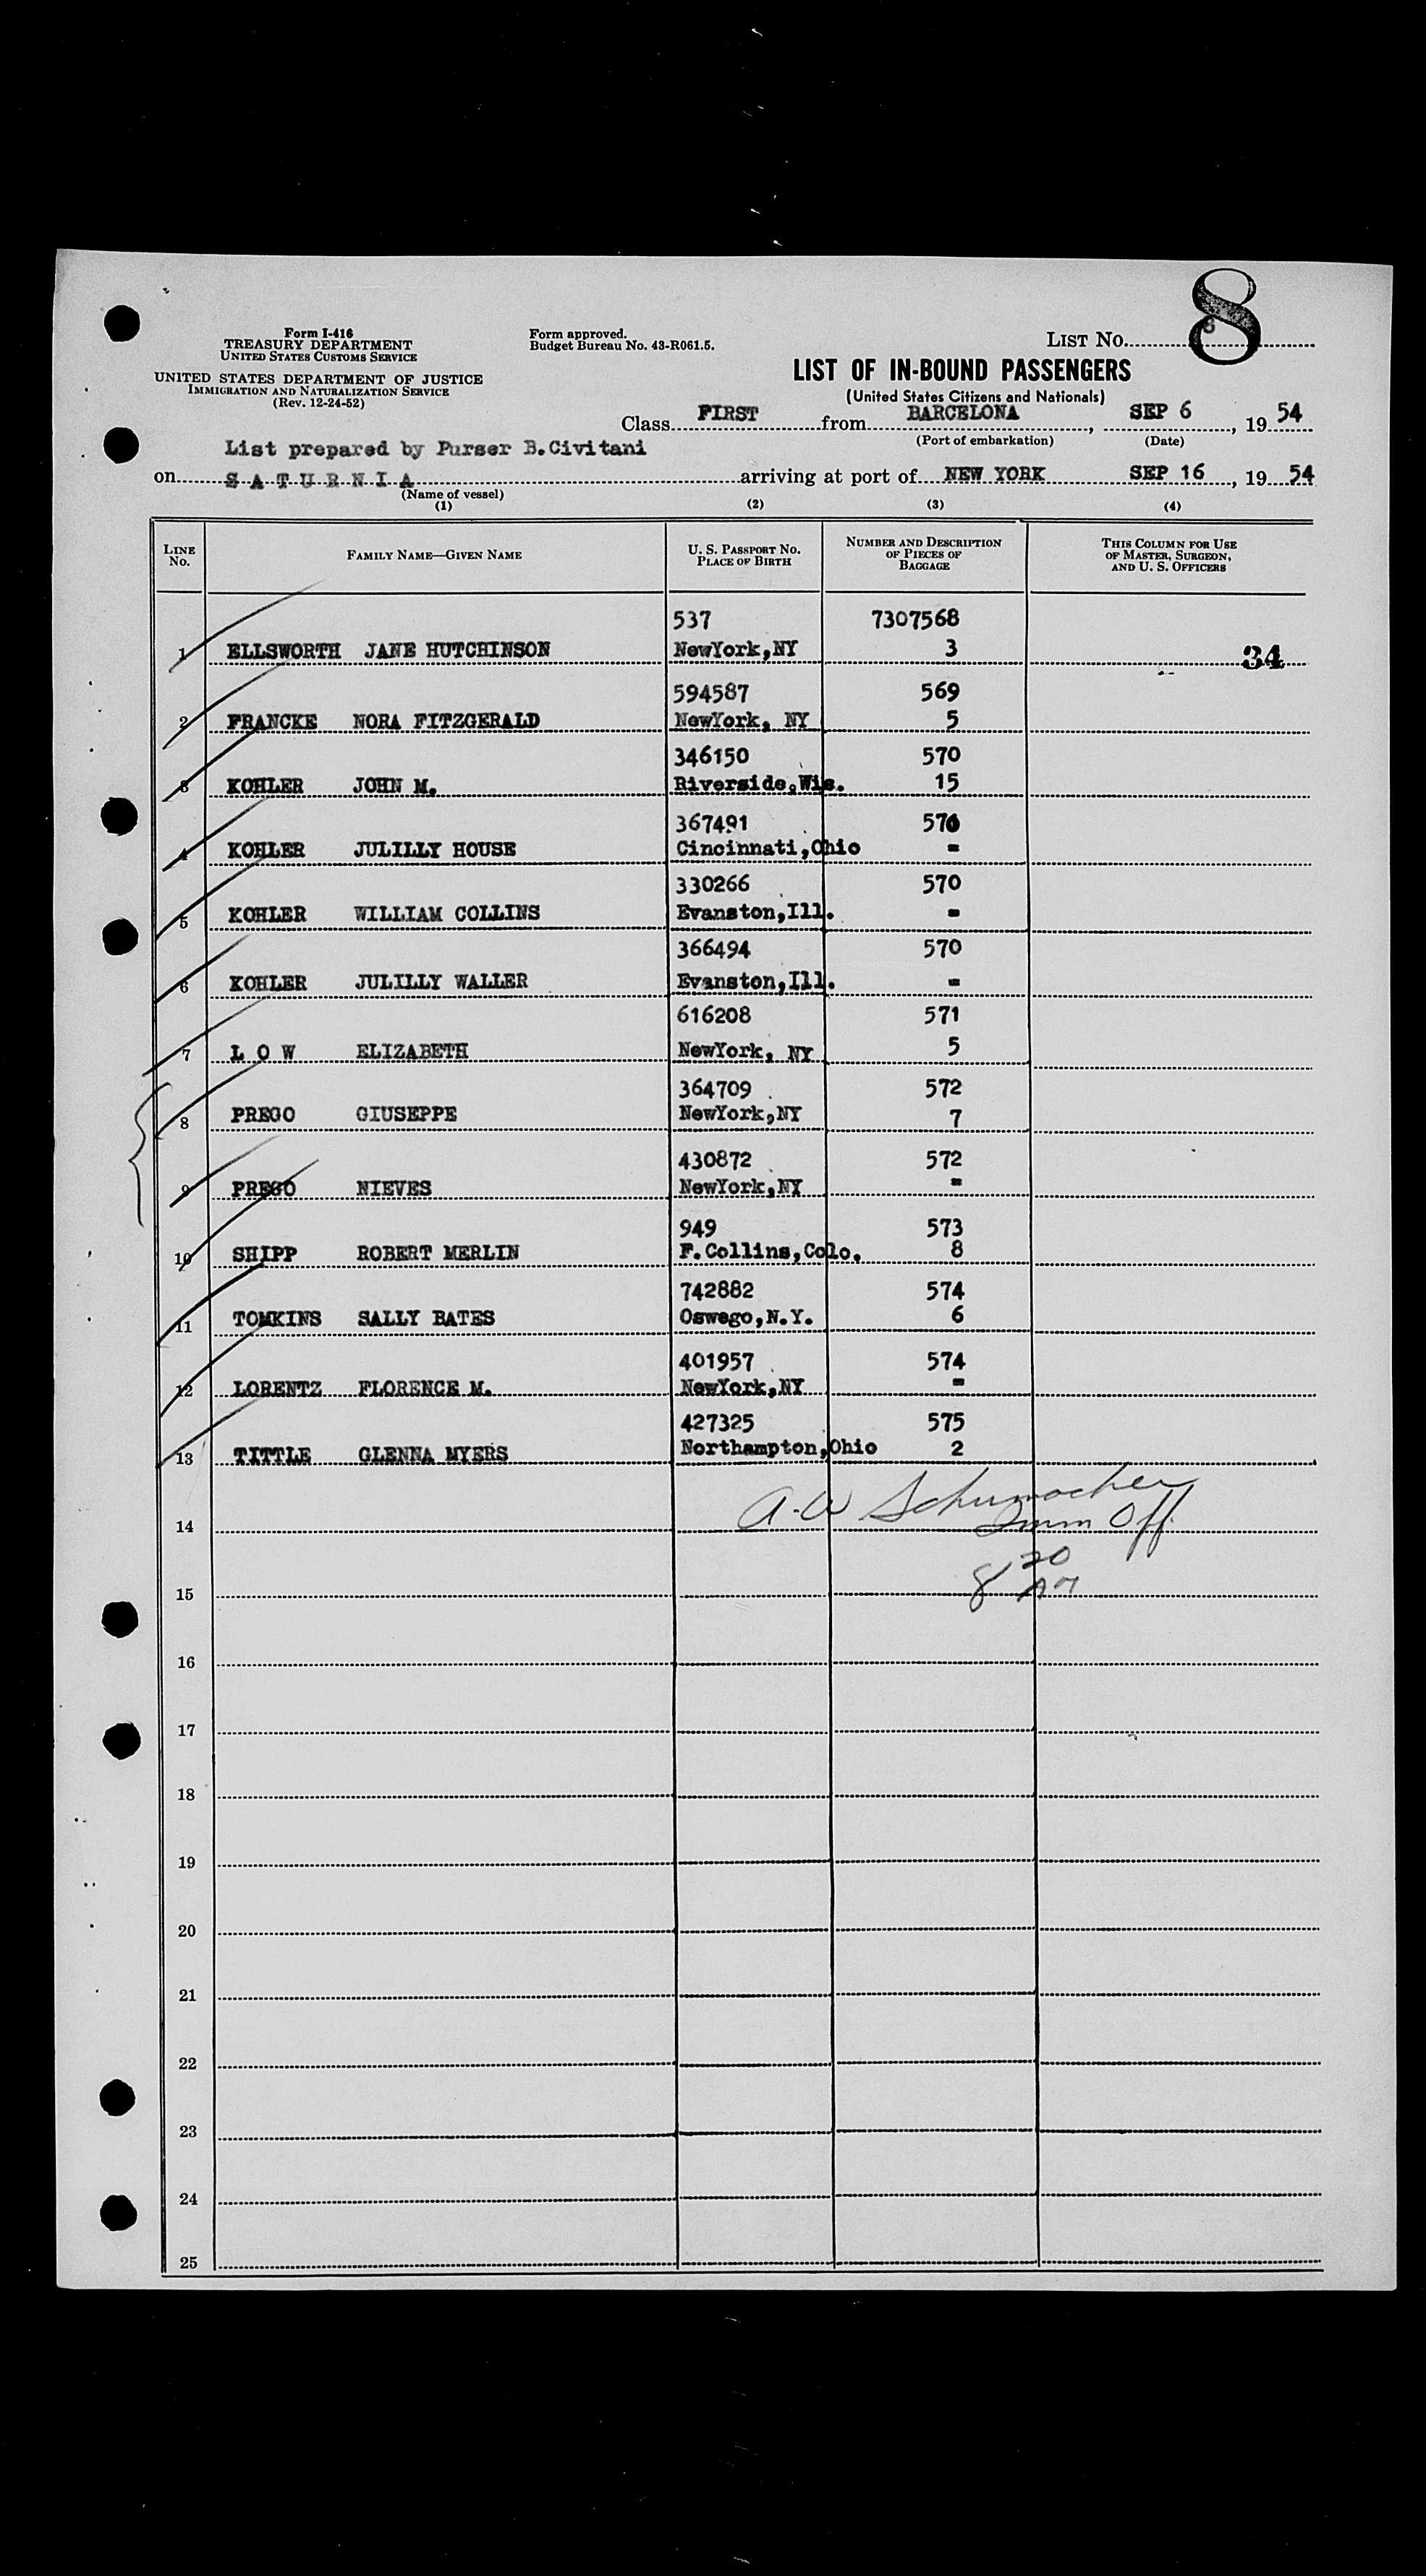 8
Form I-416
TREASURY DEPARTMENT
UNITED STATES CUSTOMS SERVICE
UNITED STATES DEPARTMENT OF JUSTICE
IMMIGRATION AND NATURALIZATION SERVICE
(Rev. 12-24-52)
Form approved.
Budget Bureau No. 43-R061.5.
LIST No. 8
LIST OF IN-BOUND PASSENGERS
(United States Citizens and Nationals)
Class FIRST from BARCELONA, SEP 6, 19 54
(Port of embarkation) (Date)
List prepared by Purser B.Civitani
on S A T U R N I A arriving at port of NEW YORK SEP 16, 19 54
(Name of vessel)
(1) (2) (3) (4)
LINE No. FAMILY NAME—GIVEN NAME U. S. PASSPORT No. PLACE OF BIRTH NUMBER AND DESCRIPTION OF PIECES OF BAGGAGE THIS COLUMN FOR USE OF MASTER, SURGEON, AND U. S. OFFICERS
537 7307568
1 ELLSWORTH JANE HUTCHINSON NewYork,NY 3 34
594587 569
2 FRANCKE NORA FITZGERALD NewYork, NY 5
346150 570
3 KOHLER JOHN M. Riverside,Wis. 15
367491 570
4 KOHLER JULILLY HOUSE Cincinnati,Ohio -
330266 570
5 KOHLER WILLIAM COLLINS Evanston,Ill. -
366494 570
6 KOHLER JULILLY WALLER Evanston,Ill. -
616208 571
7 L O W ELIZABETH NewYork, NY 5
364709 572
8 PREGO GIUSEPPE NewYork,NY 7
430872 572
9 PREGO NIEVES NewYork,NY "
949 573
10 SHIPP ROBERT MERLIN F.Collins,Colo. 8
742882 574
11 TOMKINS SALLY BATES Oswego,N.Y. 6
401957 574
12 LORENTZ FLORENCE M. NewYork,NY "
427325 575
13 TITTLE GLENNA MYERS Northampton,Ohio 2
A.W Schumacher
14 Imm Off.
8 20
15 AM
16
17
18
19
20
21
22
23
24
25